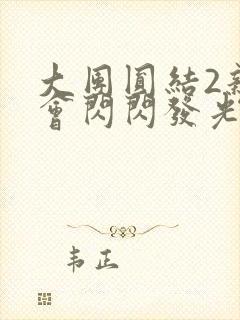 大団圓結2新
會閃閃發光
韦正